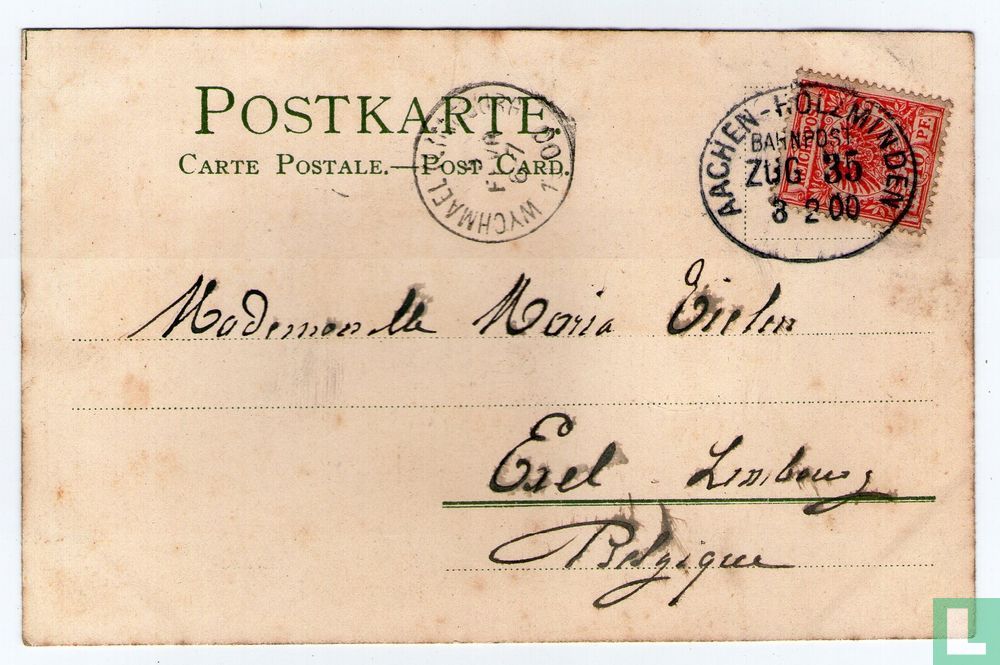 POSTKARTE.
CARTE POSTALE.—POST CARD.
WYCHMAEL
AACHEN-HOLZMINDEN
BAHNPOST
ZUG 35
8 2 00
REICHSPOST
PF.
Mademoiselle Maria Eielen
Exel Limbourg
Belgique
L